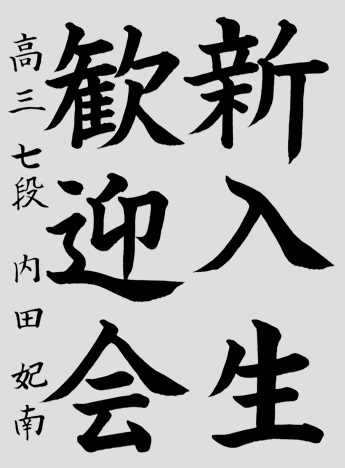 新入生
歓迎会
高三 七段 内田 妃南